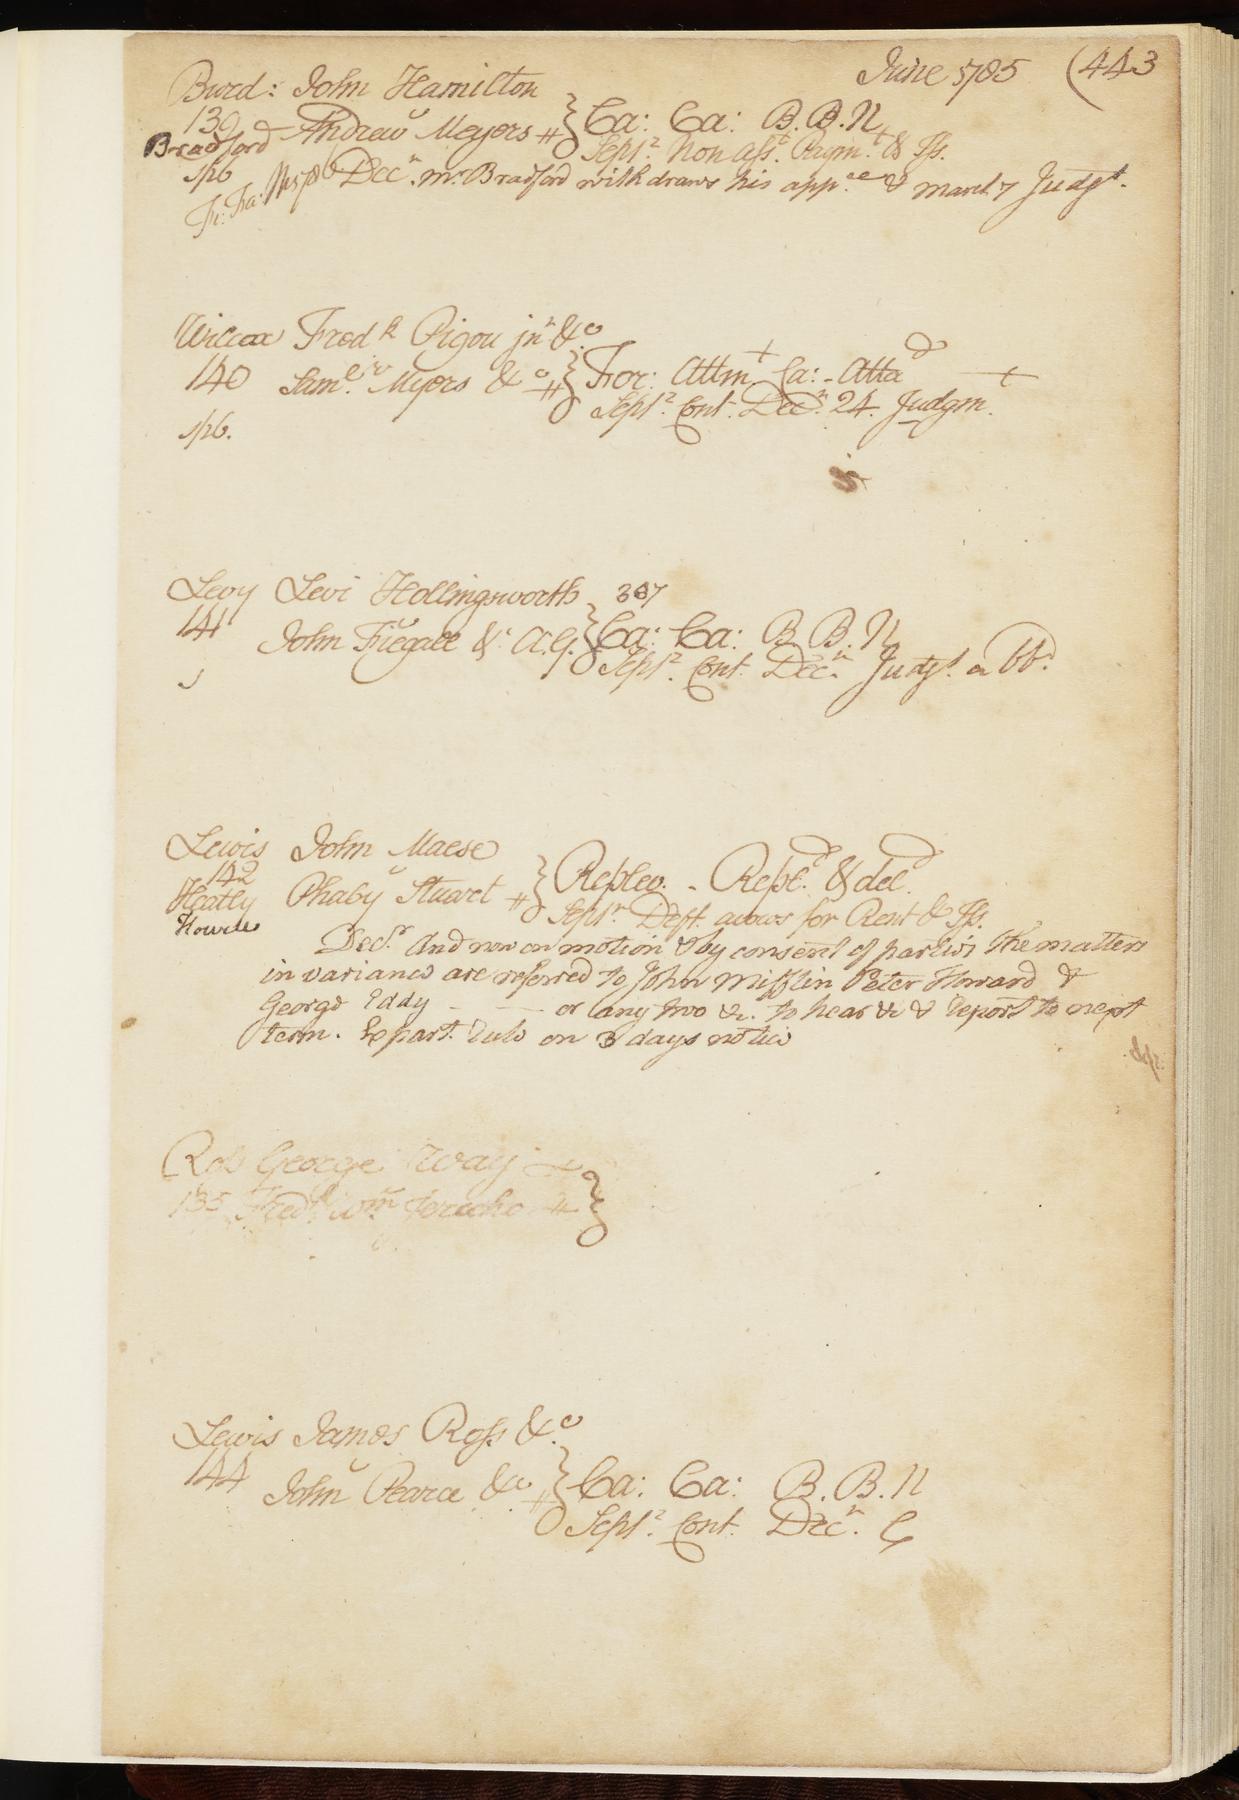 June 1785 (443
Burd: John Hamilton
139 v Andrew Meyers } Ca: Ca: B. B. N
Bradford Sept.r Non Asst. Paymt. & Iss.
spb Dec.r Mr Bradford withdraws his app.ce & March 7 Judgt.
Fi: Fa:
Wilcox Fred.k Pigou jn.r & Co
140 v Sam.l Myers & Co } For: Attm.t Ca: - Atta.d
Sept.r Cont. Dec.r 24. Judgm.
spb.
Levy Levi Hollingsworth 387
141 v John Fiegall & Ca: Ca: B. B. N
Sept.r Cont. Dec.r Judgt. a bb.
Lewis John Mease
142 v
Heatly Phaby Stuart } Replev. - Repl.d & del.d
Howell Sept.r Deft. avows for Rent & Iss.
Dec.r And now on motion & by consent of parties the matters
in variance are referred to John Mifflin Peter Howard &
George Eddy - - or any two &c. to hear &c & report to next
term. Expart. rule on 3 days notice
spb.
Rob George Way
135 Fred.k Wm. Jericho }
Lewis James Ross & Co
144 v John Pearce & Co } Ca: Ca: B. B. N
Sept.r Cont. Dec.r C